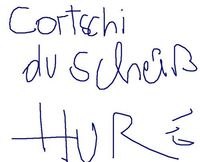 Cortschi
du scheiß
HURE